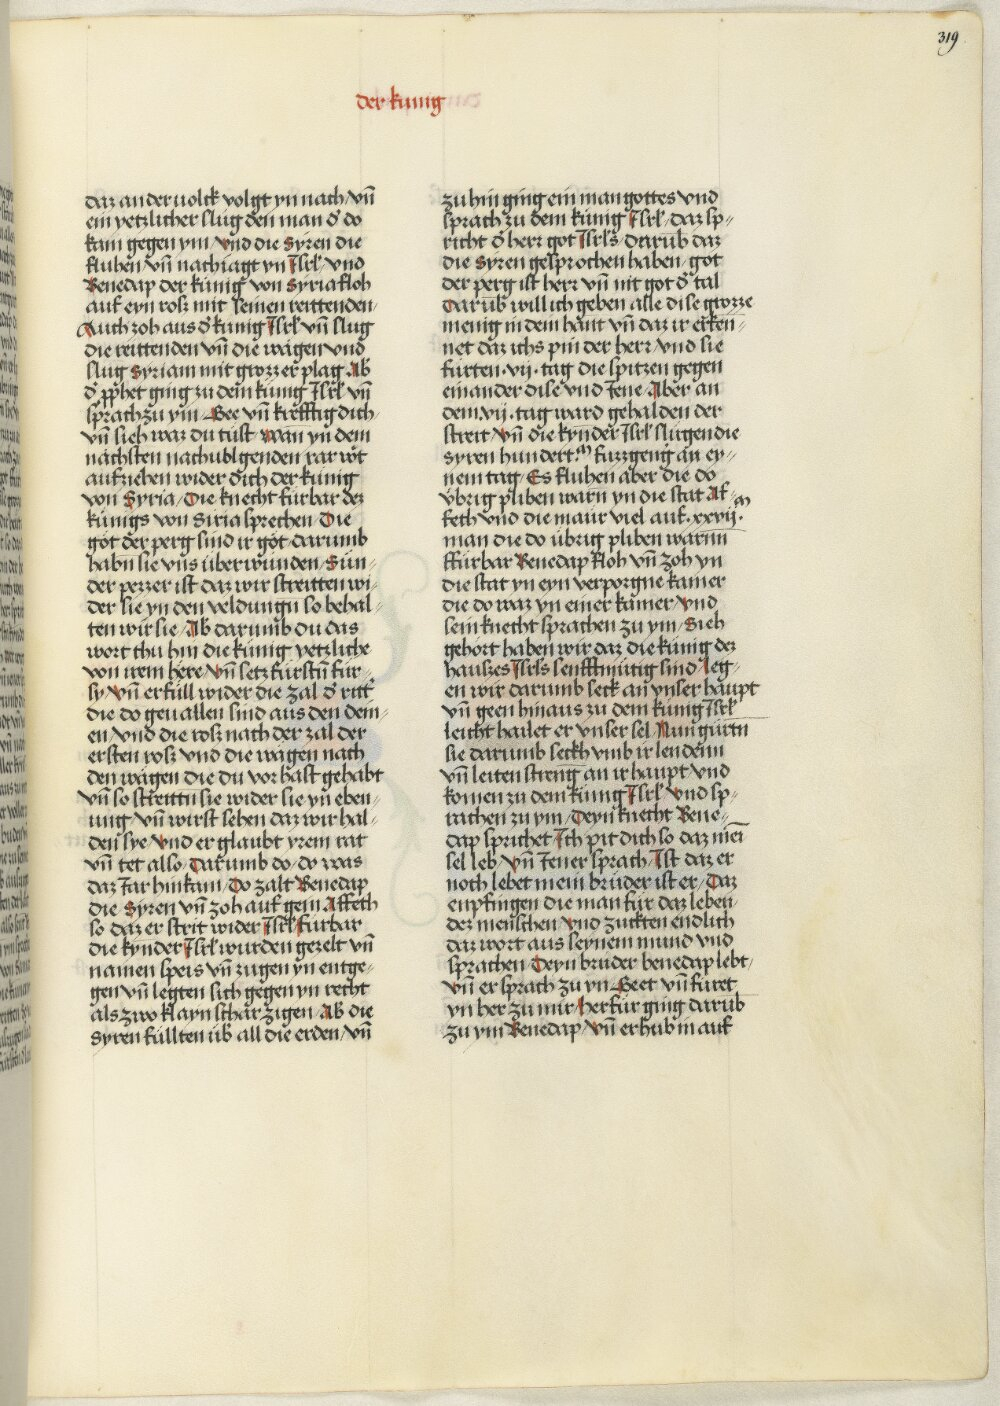 319
der kunig
daz ander uolck volgt yn nach / vn̄
ein yetzlicher slug den man d' do
kam gegen ym / vnd die Syren die
fluhen vn̄ nachiagt yn Isrl' / vnd
Benedap der kunig von Syria floh
auf eyn rosz mit seinen reittenden /
Auch zoh aus d' kunig Isrl' vn̄ slug
die reittenden vn̄ die wägen vnd
slug Syriam mit grozzer plag Ab
d' pphet ging zu dem kunig Isrl' vn̄
sprach zu ym / Gee vn̄ krefftig dich /
vn̄ sieh waz du tust / wan yn dem
nachsten nachuolgenden iar wt
aufzieben wider dich der kunig
von Syria / Die knecht furbar dez
kunigs von Siria sprechen / Die
göt der perg sind ir göt / darumb
habn̄ sie vns überwunden / Sun=
der pezzer ist daz wir streitten wi=
der sie yn den veldungn̄ so behal=
ten wir sie / Ab darumb du das
wort thu hin die kunig yetzliche
von irem here / vn̄ setz furstn̄ fur=
sy / vn̄ erfull wider die zal d' ritt'
die do geuallen sind aus den dein=
en / vnd die rosz nach der zal der
ersten rosz vnd die wagen nach
den wägen die du vor hast gehabt
vn̄ so streittn̄ sie wider sie yn eben=
ung / vn̄ wirst sehen daz wir hal=
den sye / vnd er glaubt yrem rat
vn̄ tet also / Darumb do / do was
daz Iar hinkam / Do zalt Benedap
die Syren vn̄ zoh auf gein Affech
so daz er strit wider Isrl' furbar
die kynder Isrl' wurden gezelt vn̄
namen speis vn̄ zugen yn entge=
gen vn̄ legten sich gegen yn recht
als zwo klayn schar zigen / Ab die
syren fullten üb all die erden / vn̄
zu hin ging ein man gottes vnd
sprach zu dem kunig Isrl' / daz sp=
richt d' herr got Isrl's / darub daz
die Syren gesprochen haben / got
der perg ist herr vn̄ nit got d' tal
Darub will ich geben alle dise grozze
menig in dein hant vn̄ daz ir erken=
net daz ichs pin der herr / vnd sie
furten . vij . tag die spitzen gegen
einander dise vnd Iene / Aber an
dem vij . tag ward gehalden der
streit / vn̄ die kynder Isrl' slugen die
syren hundert m fuzgeng an ey=
nem tag / Es fluhen aber die do
vbrig pliben warn yn die stat Af=
feth vnd die maur viel auf . xxvij . m
man die do übrig pliben warnn̄
ffurbar Benedap floh vn̄ zoh yn
die stat yn eyn verporgne kamer
die do waz yn einer kamer / vnd
sein knecht sprachen zu ym / Sieh
gehort haben wir daz die kunig dez
hauszes Isrl's senfftmutig sind / Leg=
en wir darumb seck an vnser haupt
vn̄ geen hinaus zu dem kunig Isrl'
leicht hailet er vnser sel / Nun gurtn̄
sie darumb seckh vmb ir lendenn
vn̄ leiten streng an ir haupt vnd
komen zu dem kunig Isrl' / vnd sp=
rachen zu ym / Deyn knecht Bene=
dap sprichet / Ich pit dich so daz mei
sel leb / vn̄ Iener sprach / Ist daz er
noch lebet mein bruder ist er / Daz
enpfingen die man fur daz leben
dez menschen / vnd zuckten endlich
daz wort aus seynem mund vnd
sprachen / Deyn bruder benedap lebt /
vn̄ er sprach zu yn / Geet vn̄ furet
yn her zu mir / herfur ging darub
zu ym Benedap / vn̄ er hub in auf